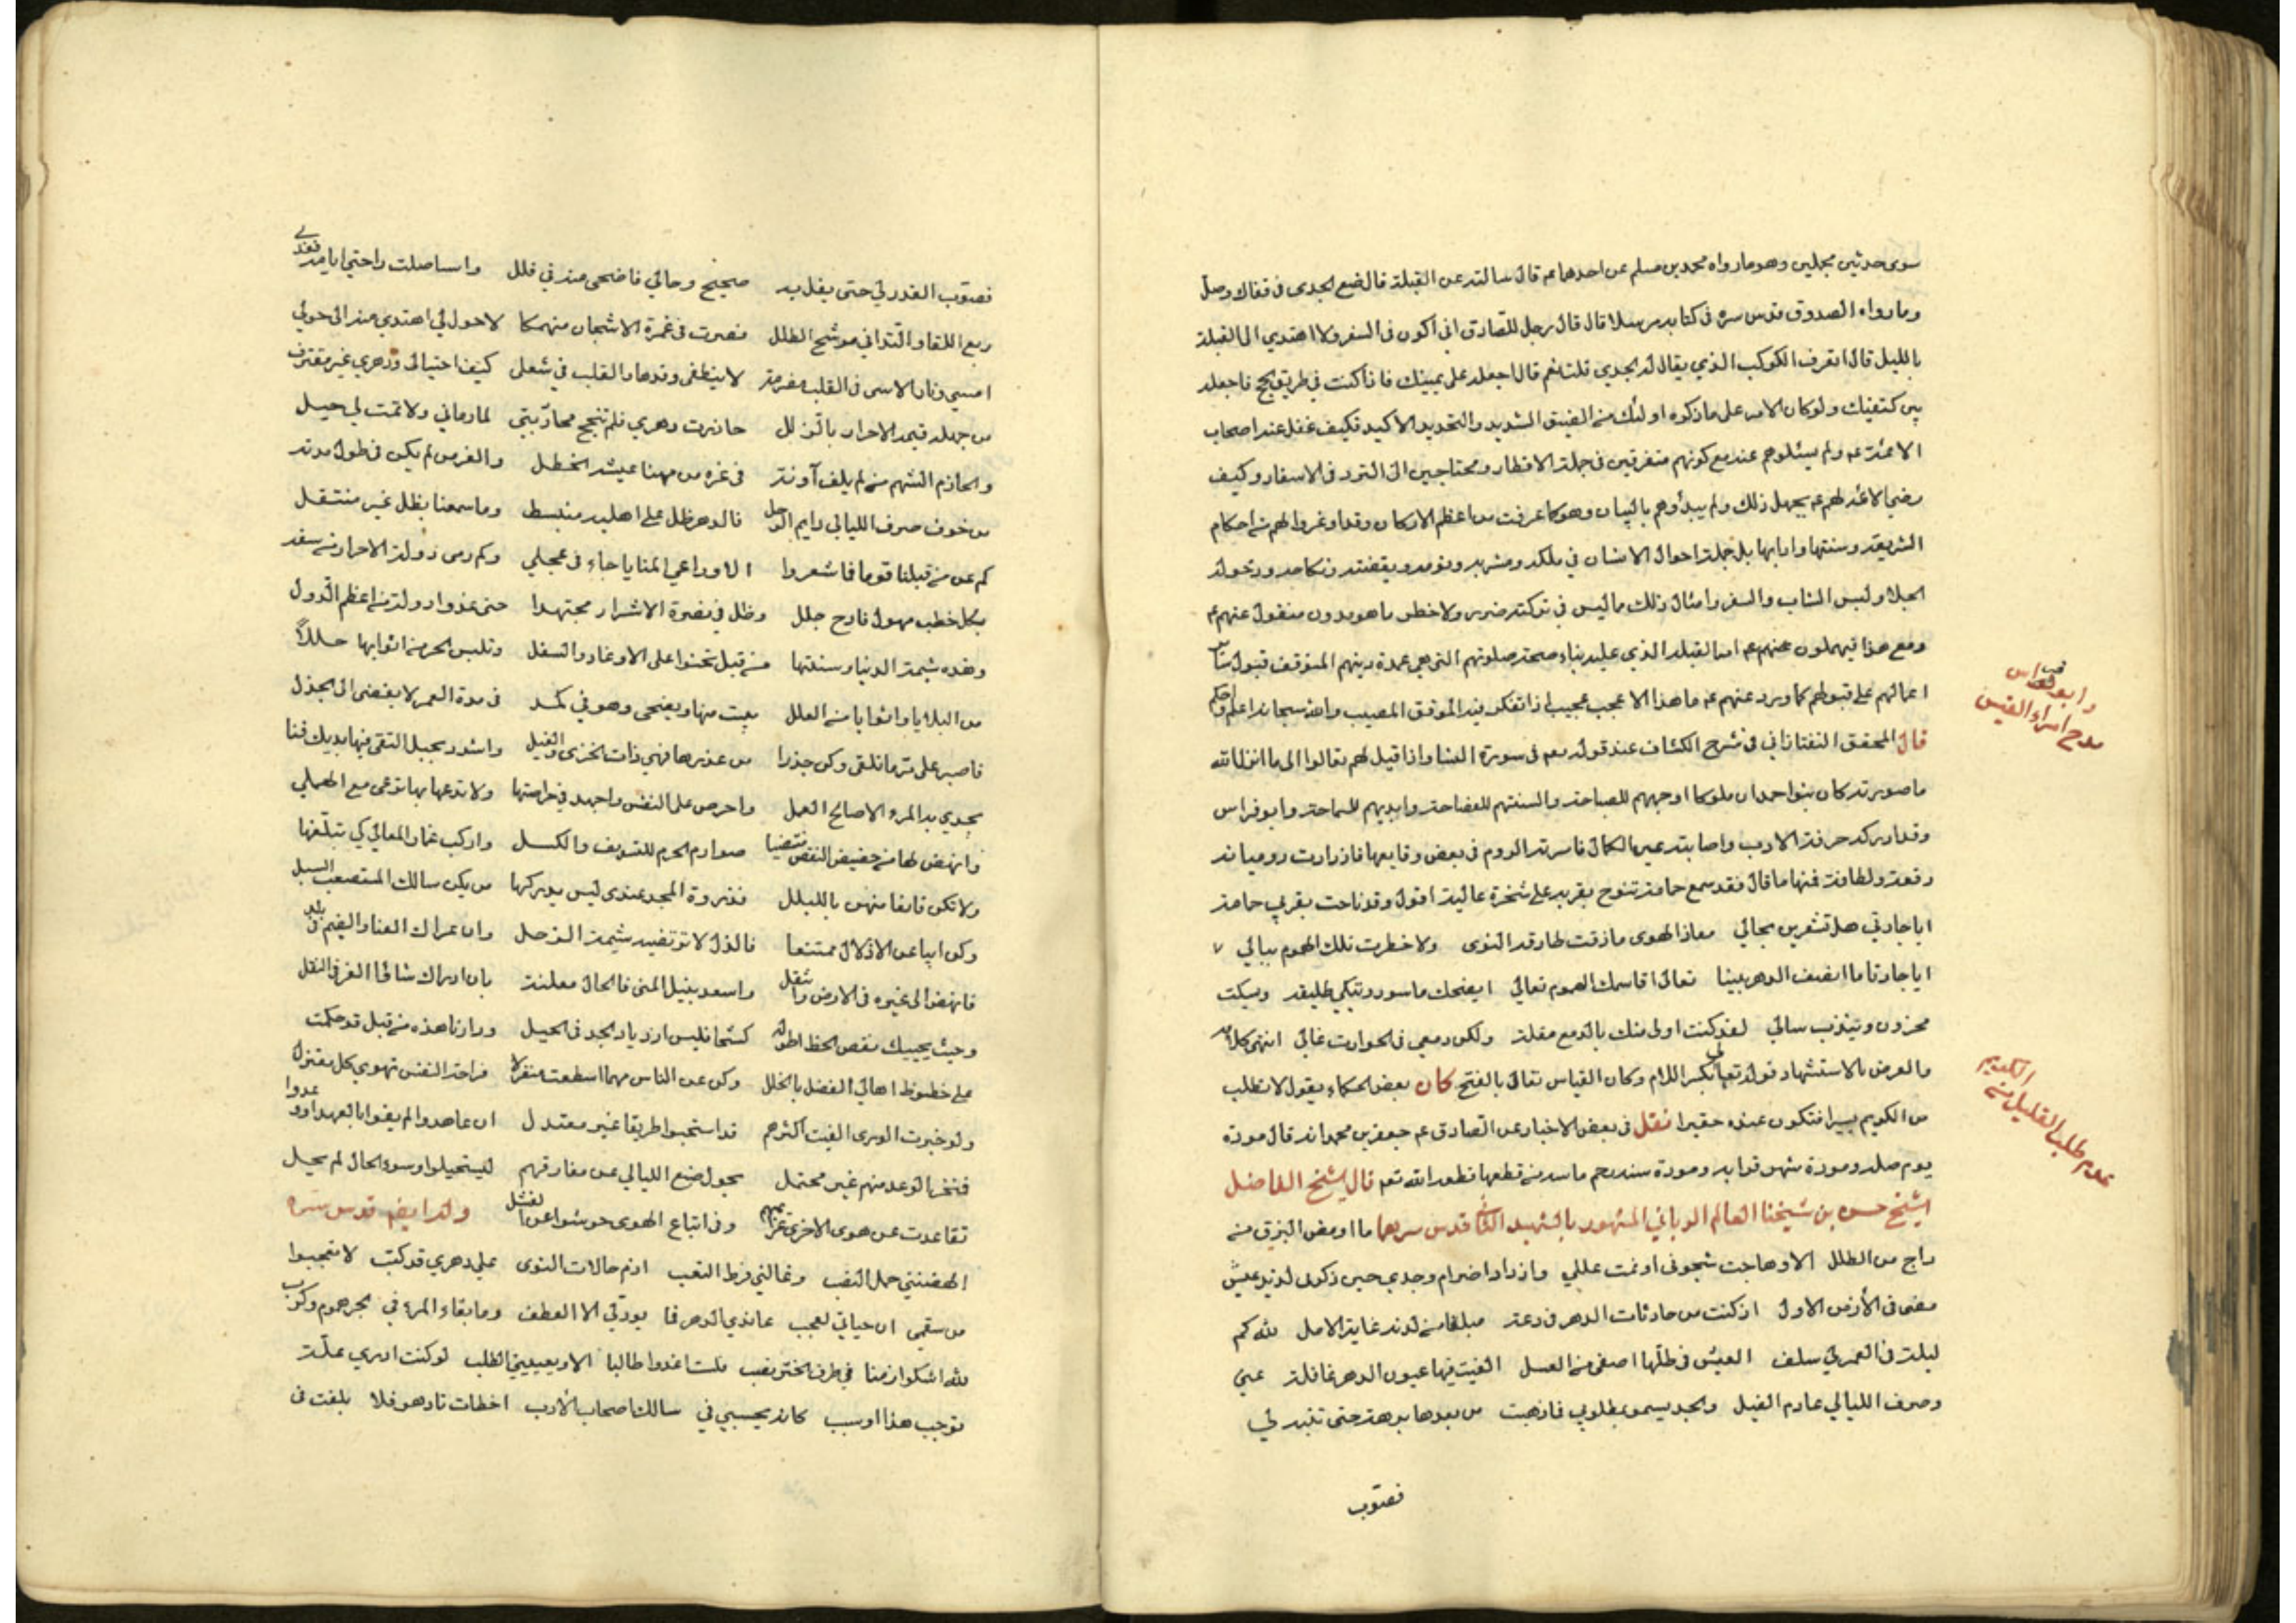 سوى حديثين مجملين وهو ما رواه محمد بن مسلم عن احدهما عم قال سالته عن القبلة قال ضع الجدى فى قفاك وصل
وما رواه الصدوق قدس سره فى كتابه مرسلا قال قال رجل للصادق انى اكون فى السفر ولا اهتدي الى القبلة
بالليل قال اتعرف الكوكب الذي يقال له الجدي قلت نعم قال اجعله على يمينك فاذا كنت في طريق الحج فاجعله
بين كتفيك ولو كان الامر على ما ذكروه اولئك من الضيق الشديد والتحديد الاكيد فكيف غفل عنه اصحاب
الائمة عم ولم يسئلوهم عنه مع كونهم متفرقين فى جملة الاقطار ومحتاجين الى التردد فى الاسفار وكيف
رضي الائمة لهم عم بجهل ذلك ولم يبدؤهم بالبيان وهو كما عرفت من اعظم الاركان وقد اوعزوا لهم من احكام
الشريعة وسننها وادابها بل جملة احوال الانسان في ماكله ومشربه ونومه ويقضته ونكاحه ودخوله
الخلا ولبس الثياب والسفر وامثال ذلك ما ليس في تركته ضرر ولا خطر ما هو مدون منقول عنهم عم
ومع هذا فيهملون عنهم عم امر القبلة الذي عليه بناء صحة صلوتهم التي هي عمدة دينهم المتوقف قبول سائر
اعمالهم على قبولها كما ورد عنهم عم ما هذا الا عجب عجيب اذا تفكر فيه الموفق المصيب والله سبحانه اعلم واحكم
قال المحقق التفتازاني فى شرح الكشاف عند قوله تعم فى سورة النسا واذا قيل لهم تعالوا الى ما انزل الله
ما صورته كان بنوا حمدان ملوكا اوجههم للصباحة والسنتهم للفصاحة وايديهم للسماحة وابو فراس
وقد ادركته حرفة الادب واصابته عين الكمال فاسرته الروم فى بعض وقايعها فازدادت رومياته
رقة ولطافة فمنها ما قال فقد سمع حامة تنوح بقربه على شجرة عالية اقول وقد ناحت بقربي حامة
ايا جارتي هل تشعرين بحالي معاذ الهوى ما ذقت طارقة النوى ولا خطرت تلك الهموم ببالي
ايا جارتا ما انصف الدهر بيننا تعالى اقاسمك الهموم تعالي ايضحك ماسور وتبكي طليقة ويسكت
محزون ويندب سالي لقد كنت اولى منك بالدمع مقلة ولكن دمعي فى الحوادث غالي انتهى كلامه
والغرض بالاستشهاد قوله تعالي بكسر اللام وكان القياس تعالى بالفتح كان بعض الحكماء يقول لا تطلب
من الكريم يسيرا فتكون عنده حقيرا نقل فى بعض الاخبار عن الصادق عم جعفر بن محمد انه قال مودة
يوم صلة ومودة شهر قرابة ومودة سنة رحم ماسة من قطعها قطعه الله تعم قال الشيخ الفاضل
الشيخ حسن بن شيخنا العالم الرباني المشهور بالشهيد الثانى قدس سرهما ما اومض البرق من
داج من الطلل الا وهاجت شجونى او نمت عللي وازداد اضرام وجدي حين ذكرنى لذيذ عيش
مضى فى الأزمن الاول اذ كنت من حادثات الدهر فى دعة مبلغا من لدنه غاية الامل لله كم
ليلة فى العمر لي سلف العيش فى ظلها اصفى من العسل الفيت فيها عيون الدهر غافلة عني
وصرف الليالي عادم الغيل والجد يسمو بمطلوبي فاذهبت من بعدها برهة حتى تنبه لي
فصوب
وابو فراس
مدح امراء القيس
عدم طلب القليل من
الكريم
فصوب الغدر لي حتى يفل به صحيح وحالي فاضحى منه في فلل واستاصلت راحتي ايامه فغدى
ربع اللقا والتداني موشح الطلل فصرت فى غمرة الاشجان منهمكا لا حول لي اهتدي منه الى حولي
امسي ونار الاسى فى القلب مضرمة لا ينطفى وقدها والقلب في شغل كيف احتيالى ودهري غير مقترف
من جهله قيمة الاحرار بالزلل حاذرت دهري فلم تنجح محاذرتي لما رماني ولا تمت لي حيل
والحازم الشهم من لم يلف آونة فى غرة من مهنا عيشه الخضل والغر من لم يكن فى طول مدته
من خوف صرف الليالي دايم الوجل فالدهر ظل على اهليه منبسط وما سمعنا بظل غير منتقل
كم غر من قبلنا قوما فما شعروا الا وداعي المنايا جاء فى عجل وكم رمى دولة الاحرار من سفه
بكل خطب مهول فادح جلل وظل في نصرة الاشرار مجتهدا حتى غدوا دولة من اعظم الدول
وهذه شيمة الدنيا وسنتها من قبل تحنوا على الاوغاد والسفل وتلبس الحر من اثوابها حللا
من البلايا واثوابا من العلل يبيت منها ويضحى وهو في كمد فى مدة العمر لا يفضى الى الجذل
فاصبر على مر ما تلقى وكن حذرا من غدرها فهي ذات الختر والغيل واشدد بحبل التقى فيها يديك فما
يجدي بها المرء الا صالح العمل واحرص على النفس واجهد في حراستها ولا تدعها بها ترعى مع الهمل
وانهض لها من حضيض النقص منتضيا صوارم الحزم للتسويف والكسل واركب غمار المعالي كي تبلغها
ولا تكن قانعا منهن بالبلل فذروة المجد عندى ليس يدركها من يكن سالك المستصعب السبل
وكن ابيا عن الاذلال ممتنعا فالذل لا ترتضيه شيمة الرجل وان عراك العنا والضيم فى بلد
فانهض الى غيره فى الارض وانتقل واسعد بنيل المنى فالحال معلنة بان ادراك شاو العز فى النقل
وحيث يحييك نقص الحظ فاطو له كشحا فليس ازدياد الجد فى الحيل ودارنا هذه من قبل قد حكمت
على خطوظ اهالي الفضل بالخلل وكن عن الناس مهما اسطعت منعزلا فراحة النفس تهوى كل معتزل
ولو خبرت الورى الفيت اكثرهم قد استحبوا طريقا غير معتدل ان عاهدوا لم يفوا بالعهد او وعدوا
فمنجز الوعد منهم غير محتمل يحول صنع الليالي عن مفارقهم ليستحيلوا وسوء الحال لم يحل
تقاعدت عن هوى الاخرى عزائمهم وفى اتباع الهوى حوشوا عن الفشل وله ايضم قدس سره
ابهضنني حمل النصب وغالني فرط التعب اذ مر حالات النوى على دهري قد كتب لا تعجبوا
من سقمي ان حياتي لعجب عاندني الدهر فما يودلي الا العطف وما بقاء المرء في بحر هموم وكرب
لله اشكوا زمنا في طرف الختر نصب فلست اغدوا طالبا الا ويعييني الطلب لو كنت ادري علة
توجب هذا او سبب كانه يحسبني في سالك اصحاب الأدب اخطات يا دهر فلا بلغت فى